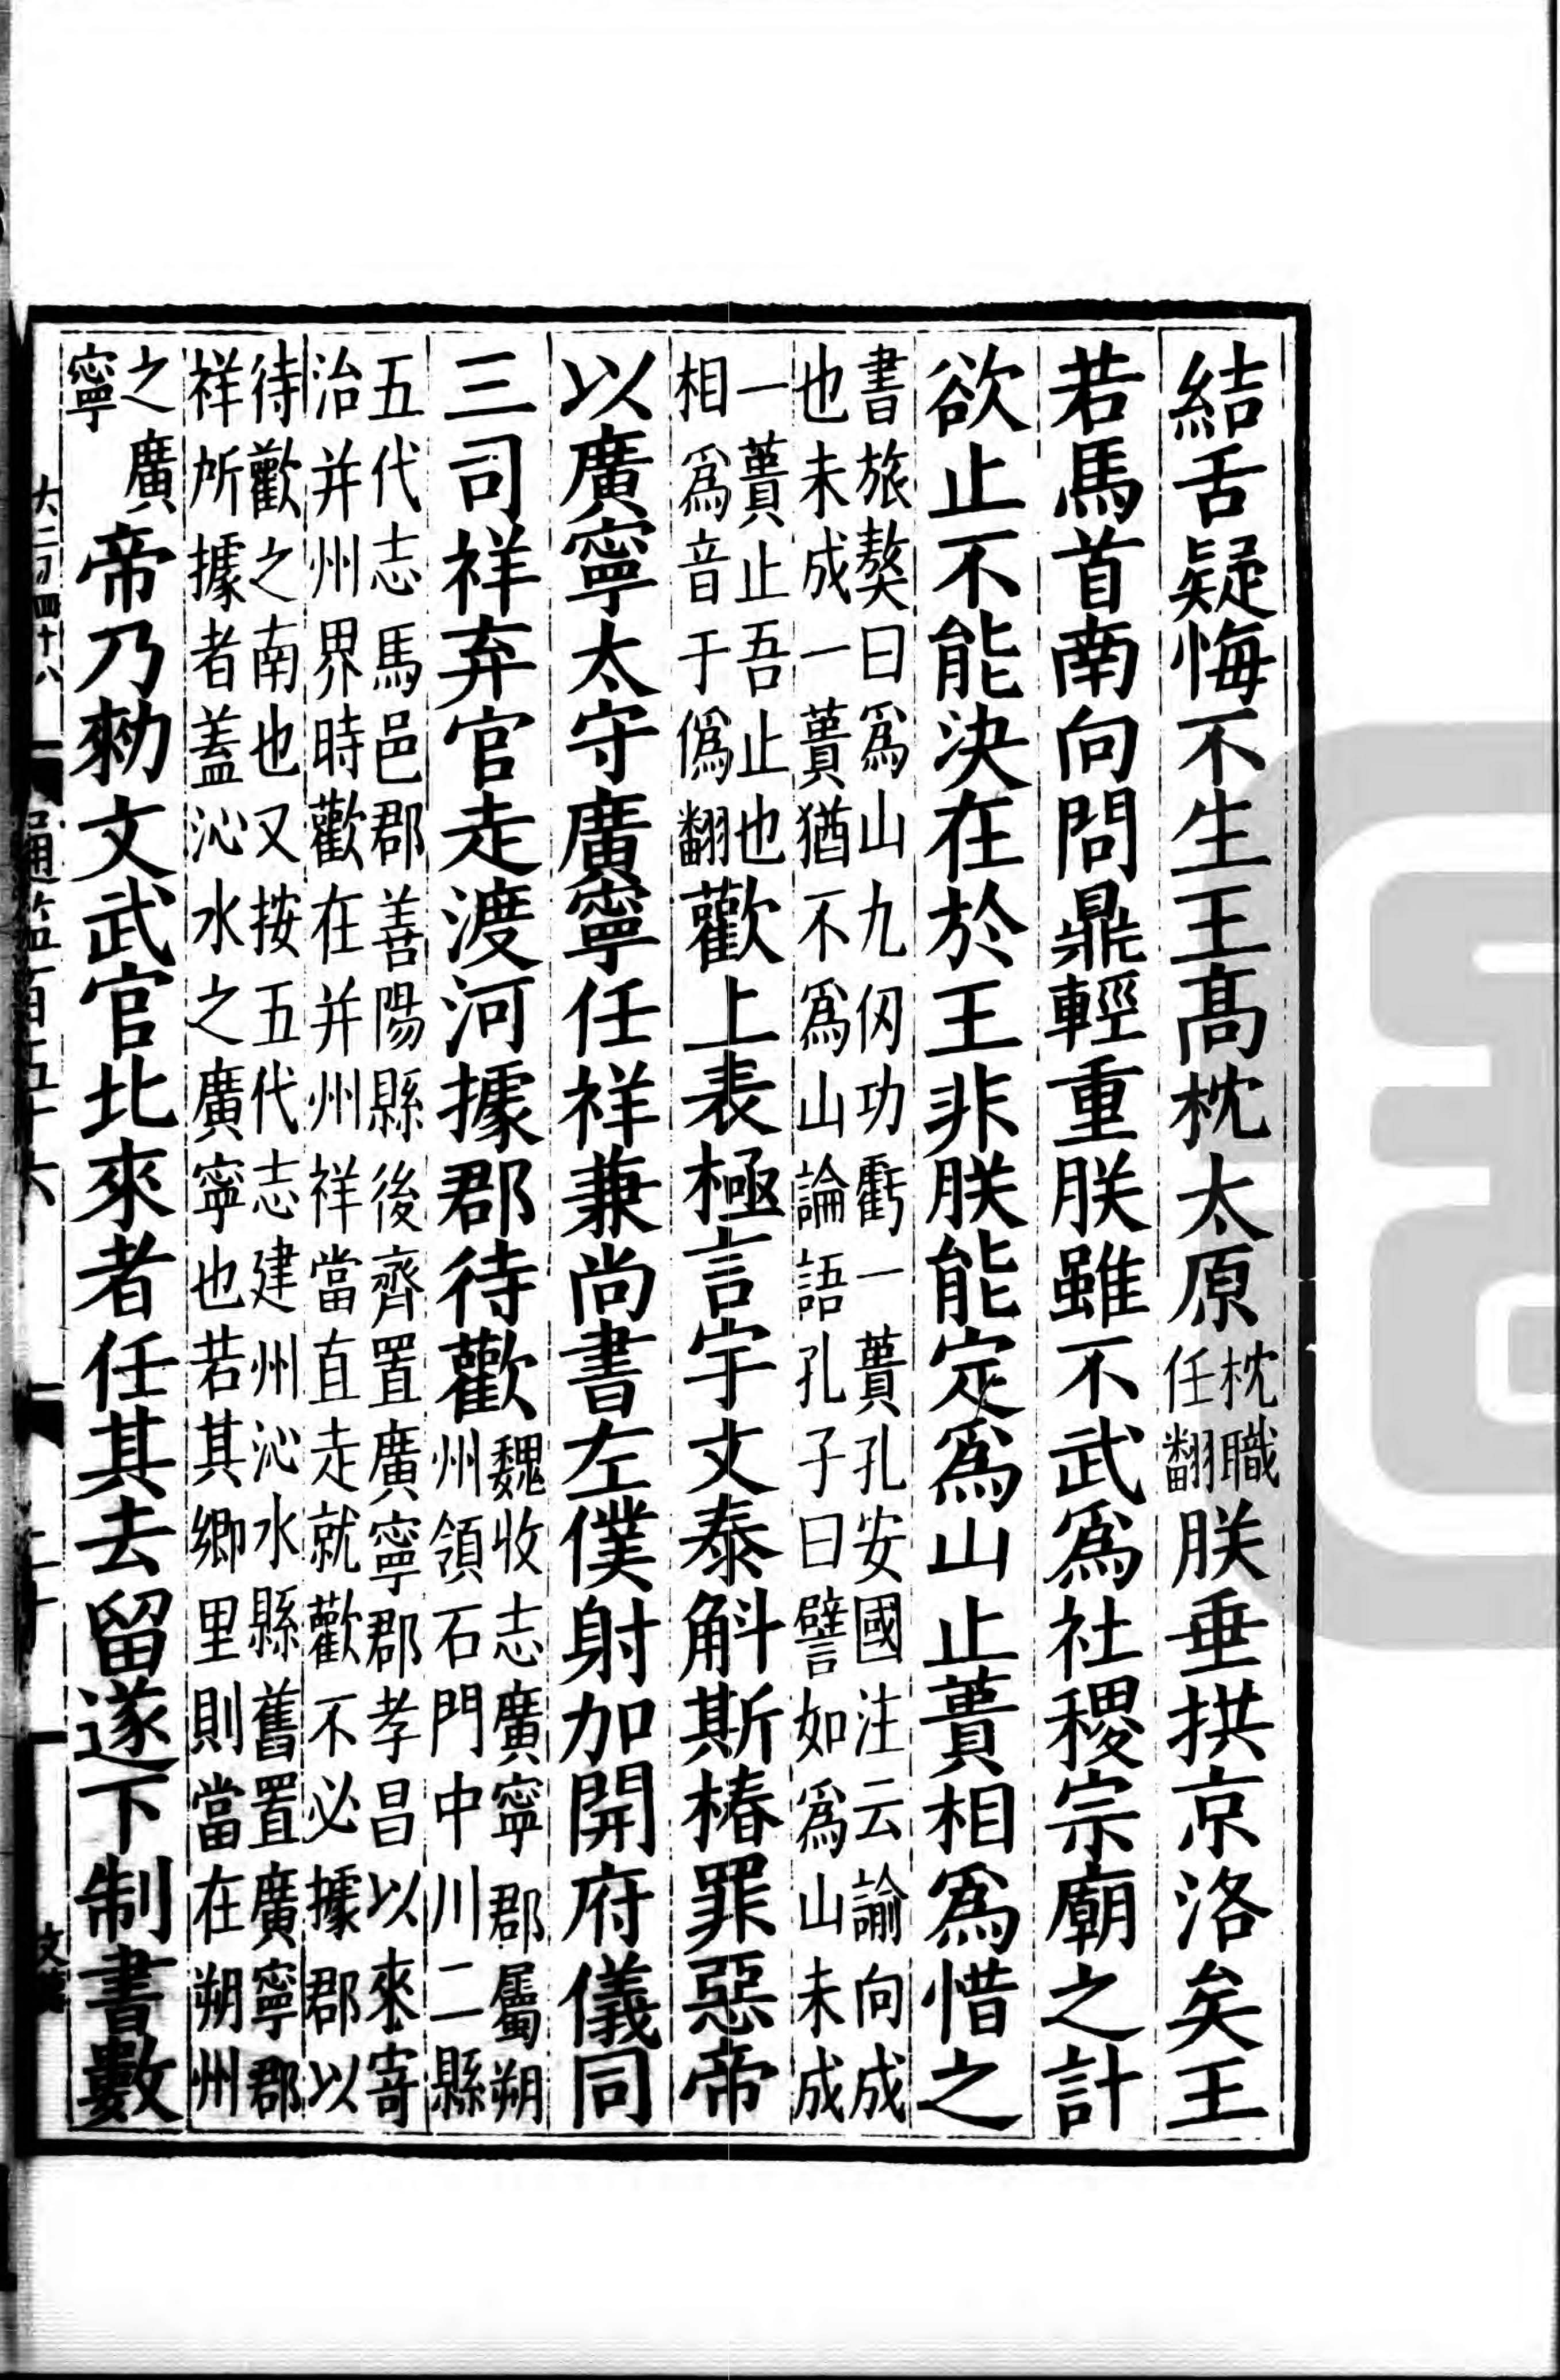 結舌疑悔不生王髙枕太原枕職任翻朕垂拱京洛矣王
若馬首南向問鼎輕重朕雖不武爲社稷宗廟之計
欲止不能決在於王非朕能定爲山止蕢相爲惜之
書旅獒曰爲山九仭功虧一蕢孔安國注云諭向成
也未成一蕢猶不爲山論語孔子曰譬如爲山未成
一蕢止吾止也
相爲音于僞翻
歡上表極言宇文泰斛斯椿罪惡帝
以廣寧太守廣寧任祥兼尚書左僕射加開府儀同
三司祥弃官走渡河據郡待歡
魏收志廣寧郡屬朔
州領石門中川二縣
五代志馬邑郡善陽縣後齊置廣寧郡孝昌以來寄
治并州界時歡在并州祥當直走就歡不必據郡以
待歡之南也又按五代志建州沁水縣舊置廣寧郡
祥所據者蓋沁水之廣寧也若其鄉里則當在朔州
之廣
寧
帝乃勑文武官北來者任其去留遂下制書數
通監一百五十六